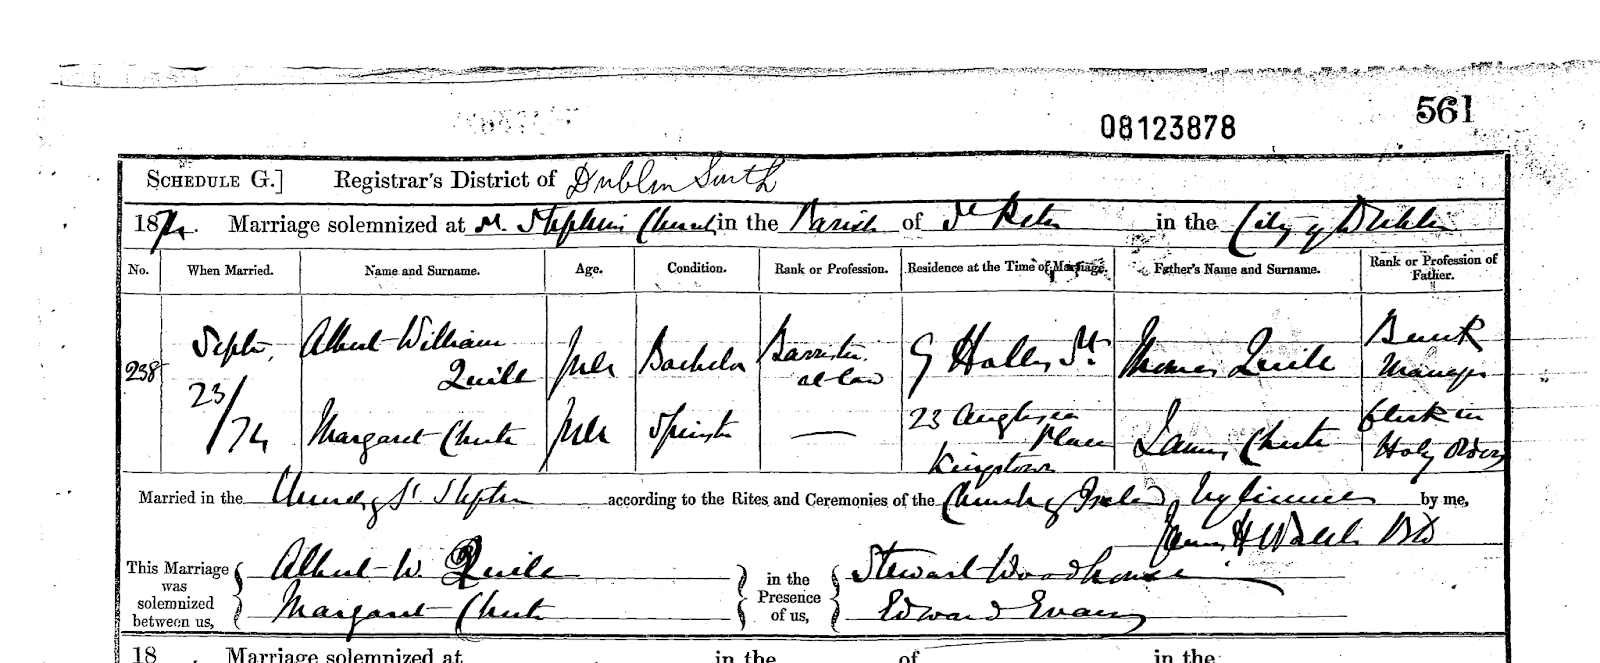 561
08123878
SCHEDULE G.] Registrar's District of Dublin South
1874. Marriage solemnized at St. Stephens Church in the Parish of St Peter in the City of Dublin
No. When Married. Name and Surname. Age. Condition. Rank or Profession. Residence at the Time of Marriage. Father's Name and Surname. Rank or Profession of Father.
238 Septr. 23/74 Albert William Quill full Bachelor Barrister at law 9 Holles St. Thomas Quill Bank Manager
Margaret Chute full Spinster — 23 Anglesea Place Kingstown James Chute Clerk in Holy Orders
Married in the Church of St Stephen according to the Rites and Ceremonies of the Church of Ireland by license by me,
James H Walsh DD
This Marriage was solemnized between us, Albert W. Quill
Margaret Chute
in the Presence of us, Stewart Woodhouse
Edward Evans
18 . Marriage solemnized at in the of in the